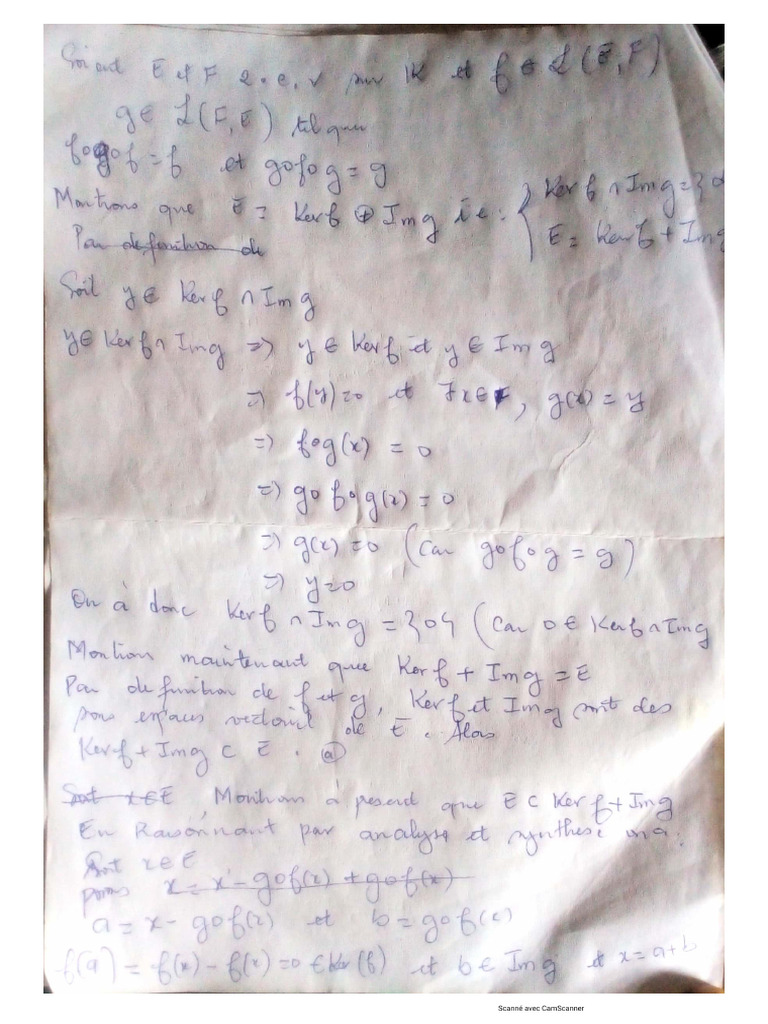 Soient E et F 2 e.v sur IK et f ∈ L(E,F)
g ∈ L(F,E) tel que
fogof = f et gofog = g
Montrons que E = Kerf ⊕ Img ie : { Kerf ∩ Img = {0
E = Kerf + Img
P̶a̶r̶ ̶d̶e̶f̶i̶n̶i̶t̶i̶o̶n̶ ̶d̶e̶
Soit y ∈ Kerf ∩ Img
y ∈ Kerf ∩ Img => y ∈ Kerf et y ∈ Img
=> f(y)=0 et ∃x∈F, g(x) = y
=> fog(x) = 0
=> gofog(x) = 0
=> g(x) = 0 (Car gofog = g)
=> y=0
On à donc Kerf ∩ Img = {0} (Car 0 ∈ Kerf ∩ Img
Montron maintenant que Kerf + Img = E
Par definition de f et g, Kerf et Img sont des
sous espaces vectoriel de E. Alors
Kerf + Img ⊂ E. (a)
S̶o̶i̶t̶ ̶x̶∈̶E̶, Montron à présent que E ⊂ Kerf + Img
En Raisonnant par analyse et synthèse on a:
Soit x ∈ E
posons x̶ ̶=̶ ̶x̶ ̶-̶ ̶g̶o̶f̶(̶x̶)̶ ̶+̶ ̶g̶o̶f̶(̶x̶)̶
a = x - gof(x) et b = gof(x)
f(a) = f(x) - f(x) = 0 ∈ Ker(f) et b ∈ Img et x = a+b
Scanné avec CamScanner